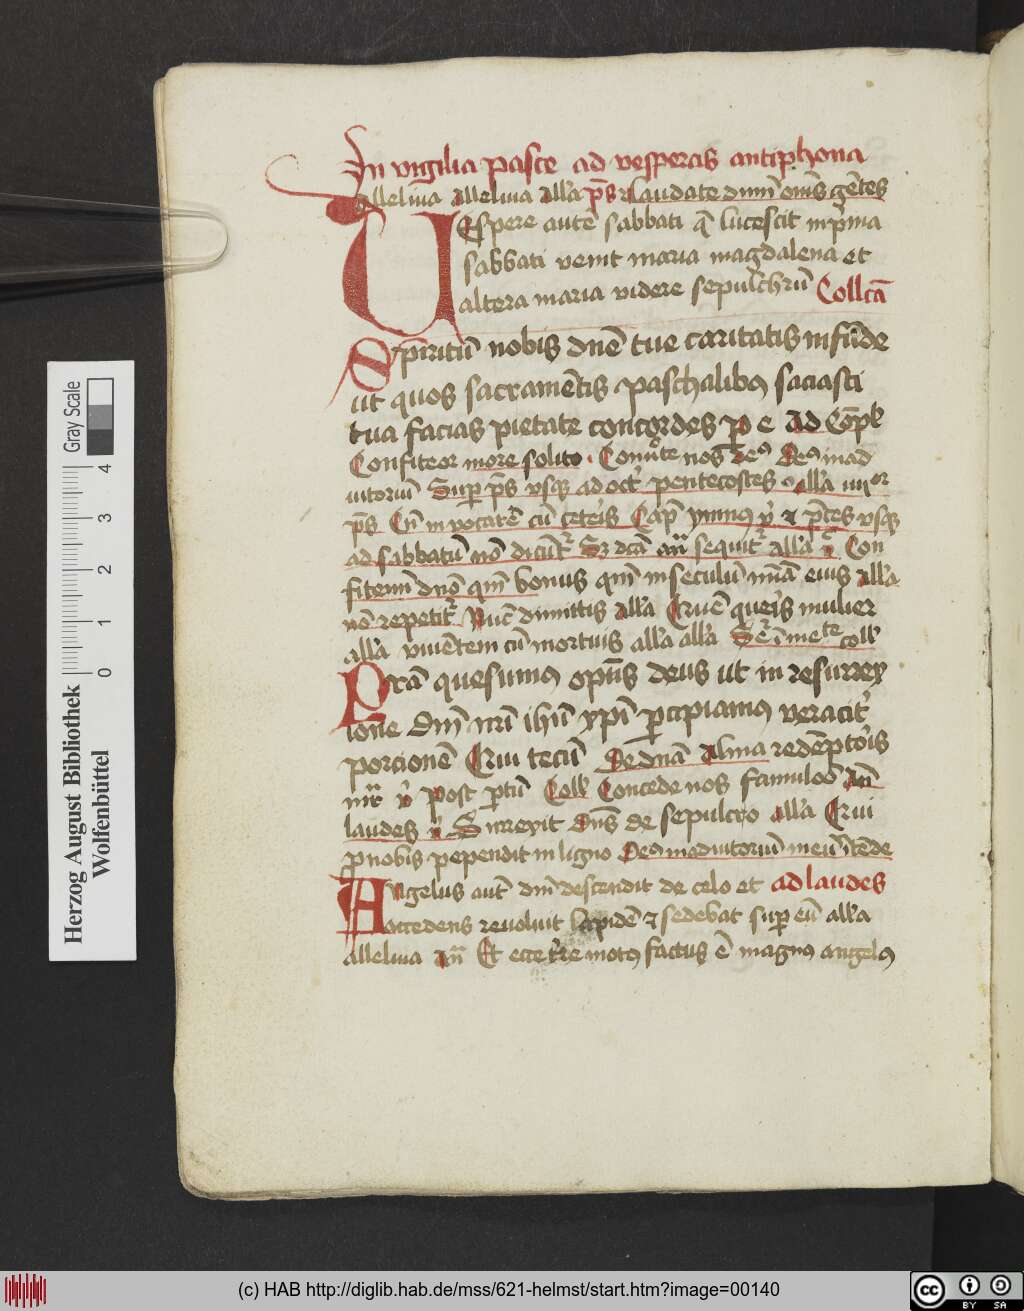 In vigilia pasce ad vesperas antiphona
Alleluia Alleluia All'a p̄s Laudate dnm̄ oms̄ gētes
VEspere autē sabbati q̄ lucescit in p̄ma
sabbati venit maria magdalena et
altera maria videre sepulchrū Collcā
Spiritū nobis dnē tue caritatis infūde
ut quos sacramētis paschalibꝰ saciasti
tua facias pietate concordes p e Ad Cōpl'
Confiteor more solito Conūte nos deꝰ Deꝰ in ad
iutoriū Sup p̄s usqꝫ ad oct' pentecostes all'a iiiior
p̄s Cū invocarē cū ceteis Cap̄ ymnus v̓ et p̄ces usqꝫ
ad sabbatū nō dicūt' Sꝫ dcā an̄ sequit' all'a v̓ Con
fitemī dnō qm̄ bonus qm̄ in seculū mīa eius all'a
nō repetit' Nūc dimittis all'a Crucē queris mulier
all'a viuētem cū mortuis all'a all'a coll'
Prā quesumꝰ opns̄ deus ut in resurrex
ione dnī nrī ihū xpī p̄cipiamꝰ veracit'
porcionē Qui tecū De dnā Alma redēptoris
mr̄ v̓ Post ptū Coll' Concede nos famulos An̄
laudes v̓ Surrexit dns̄ de sepulcro all'a Qui
p nobis pependit in ligno Deꝰ in adiutoriū meū ītēde
Angelus aut̄ dnī descendit de celo et ad laudes
accedens reuoluit lapidē et sedebat sup eū all'a
alleluia An̄ Et ecce t're motꝰ factus ē magnꝰ angelꝰ
Herzog August Bibliothek
Wolfenbüttel
Gray Scale
0 1 2 3 4
(c) HAB http://diglib.hab.de/mss/621-helmst/start.htm?image=00140
cc BY SA